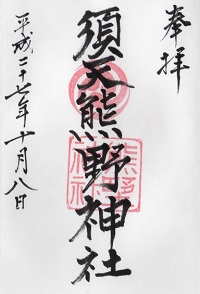 奉拝
須天熊野神社
平成二十七年十月八日